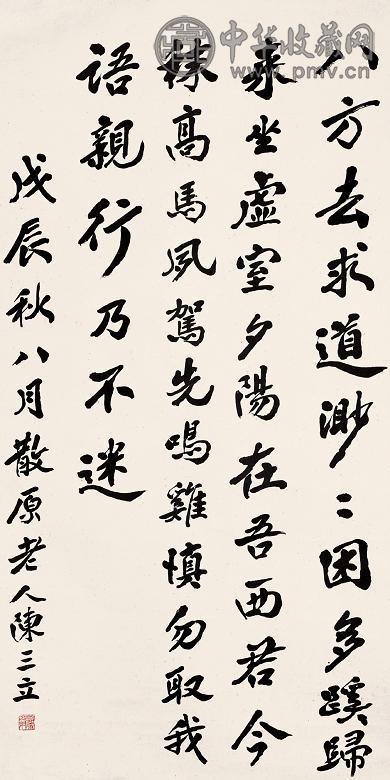 中华收藏网
www.pmv.cn
八方去求道渺〻困多蹊歸
來坐虛室夕陽在吾西君今
秣高馬夙駕先鳴雞慎勿取我
語親行乃不迷
戊辰秋八月散原老人陳三立